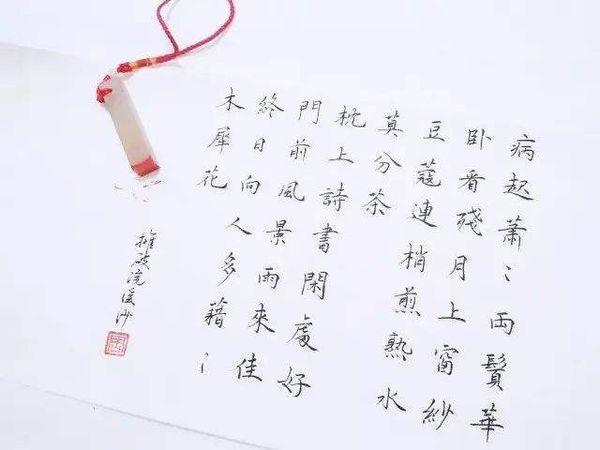 病起蕭〻兩鬢華
卧看殘月上窗紗
豆蔻連梢煎熟水
莫分茶
枕上詩書閑處好
門前風景雨來佳
終日向人多藉〻
木犀花
攤破浣溪沙